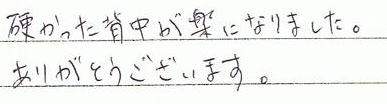 硬かった背中が楽になりました。
ありがとうございます。